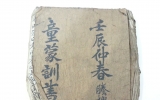 壬辰仲春
童蒙訓